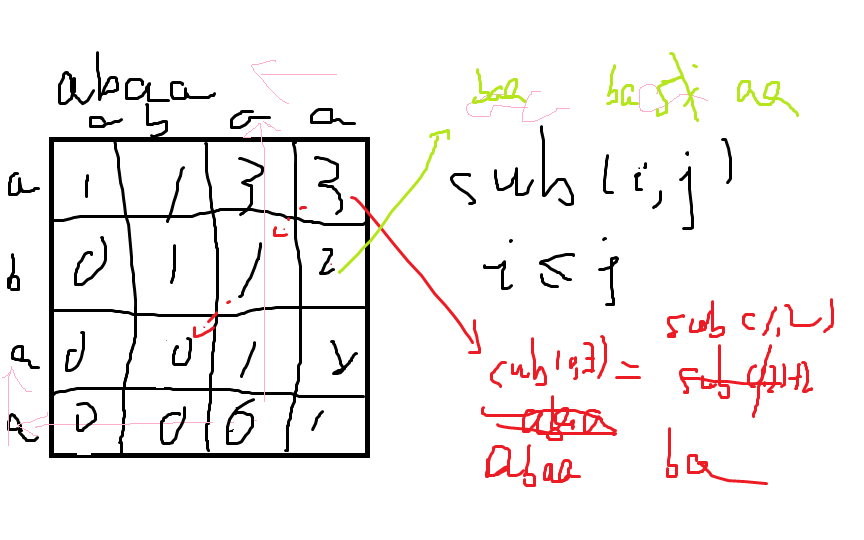 abaa
a b a a
a 1 1 3 3
b 0 1 1 2
a 0 0 1
a 0 0 0 1
baa ba aa
sub(i,j)
i ≤ j
sub(0,3) = sub(1,2)
abaa ba